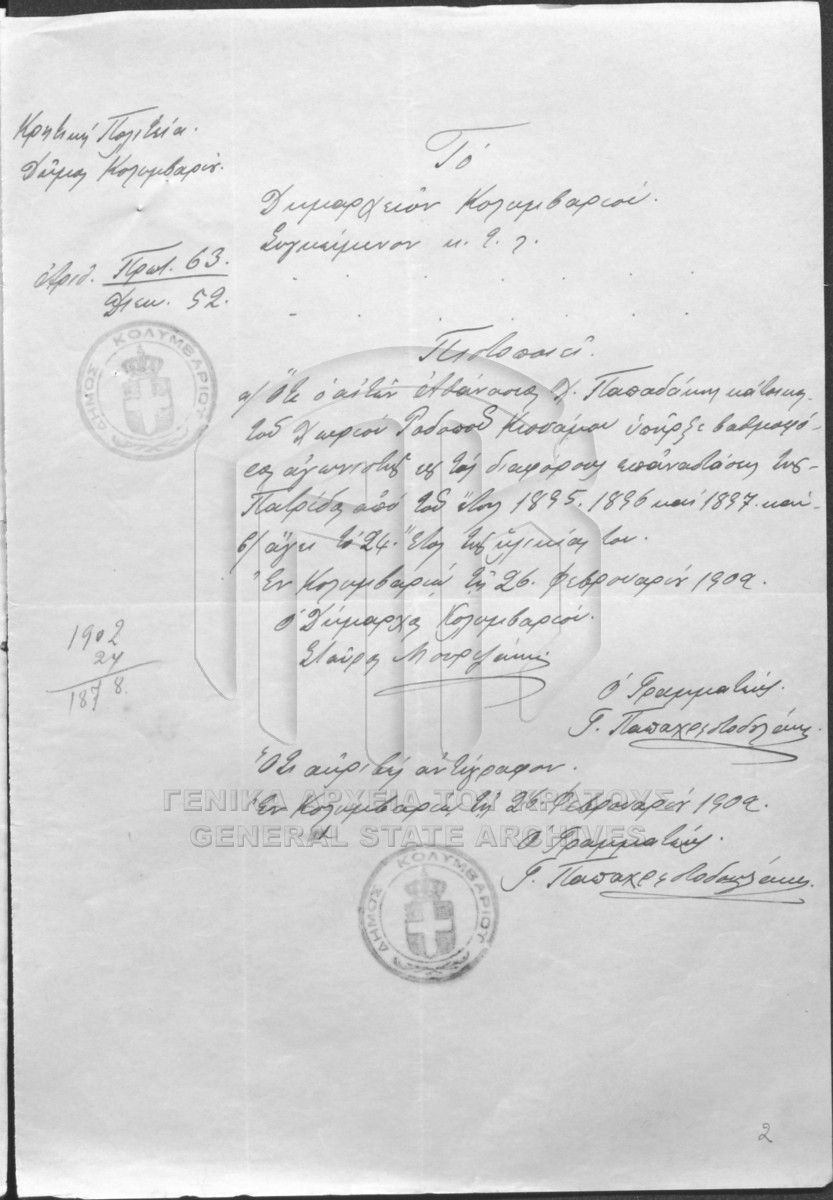 Κρητική Πολιτεία.
Δῆμος Κολυμβαρίου.
Τό
Δημαρχεῖον Κολυμβαρίου.
Συγκείμενον κ. τ. λ.
Ἀριθ. Πρωτ. 63.
Διεκ. 52.
ΔΗΜΟΣ ΚΟΛΥΜΒΑΡΙΟΥ
Πιστοποιεῖ.
α/ Ὅτι ὁ αἰτῶν Ἀθανάσιος Χ. Παπαδάκης κάτοικος
τοῦ Χωρίου Ροδωποῦ Κισσάμου ὑπῆρξε βαθμοφό-
ρος ἀγωνιστής εἰς τάς διαφόρους ἐπαναστάσεις τῆς
Πατρίδος ἀπό τοῦ ἔτους 1895. 1896 καί 1897. καί
β/ ἄγει τό 24. ἔτος τῆς ἡλικίας του.
Ἐν Κολυμβαρίῳ τῇ 26. Φεβρουαρίου 1902.
Ὁ Δήμαρχος Κολυμβαρίου.
Σταῦρος
1902
24
1878.
Ὁ Γραμματεύς.
Γ. Παπαχριστοδουλάκης.
Ὅτι ἀκριβές ἀντίγραφον.
Ἐν Κολυμβαρίῳ τῇ 26. Φεβρουαρίου 1902.
Ὁ Γραμματεύς.
Γ. Παπαχριστοδουλάκης.
ΔΗΜΟΣ ΚΟΛΥΜΒΑΡΙΟΥ
ΓΕΝΙΚΑ ΑΡΧΕΙΑ ΤΟΥ ΚΡΑΤΟΥΣ
GENERAL STATE ARCHIVES
2